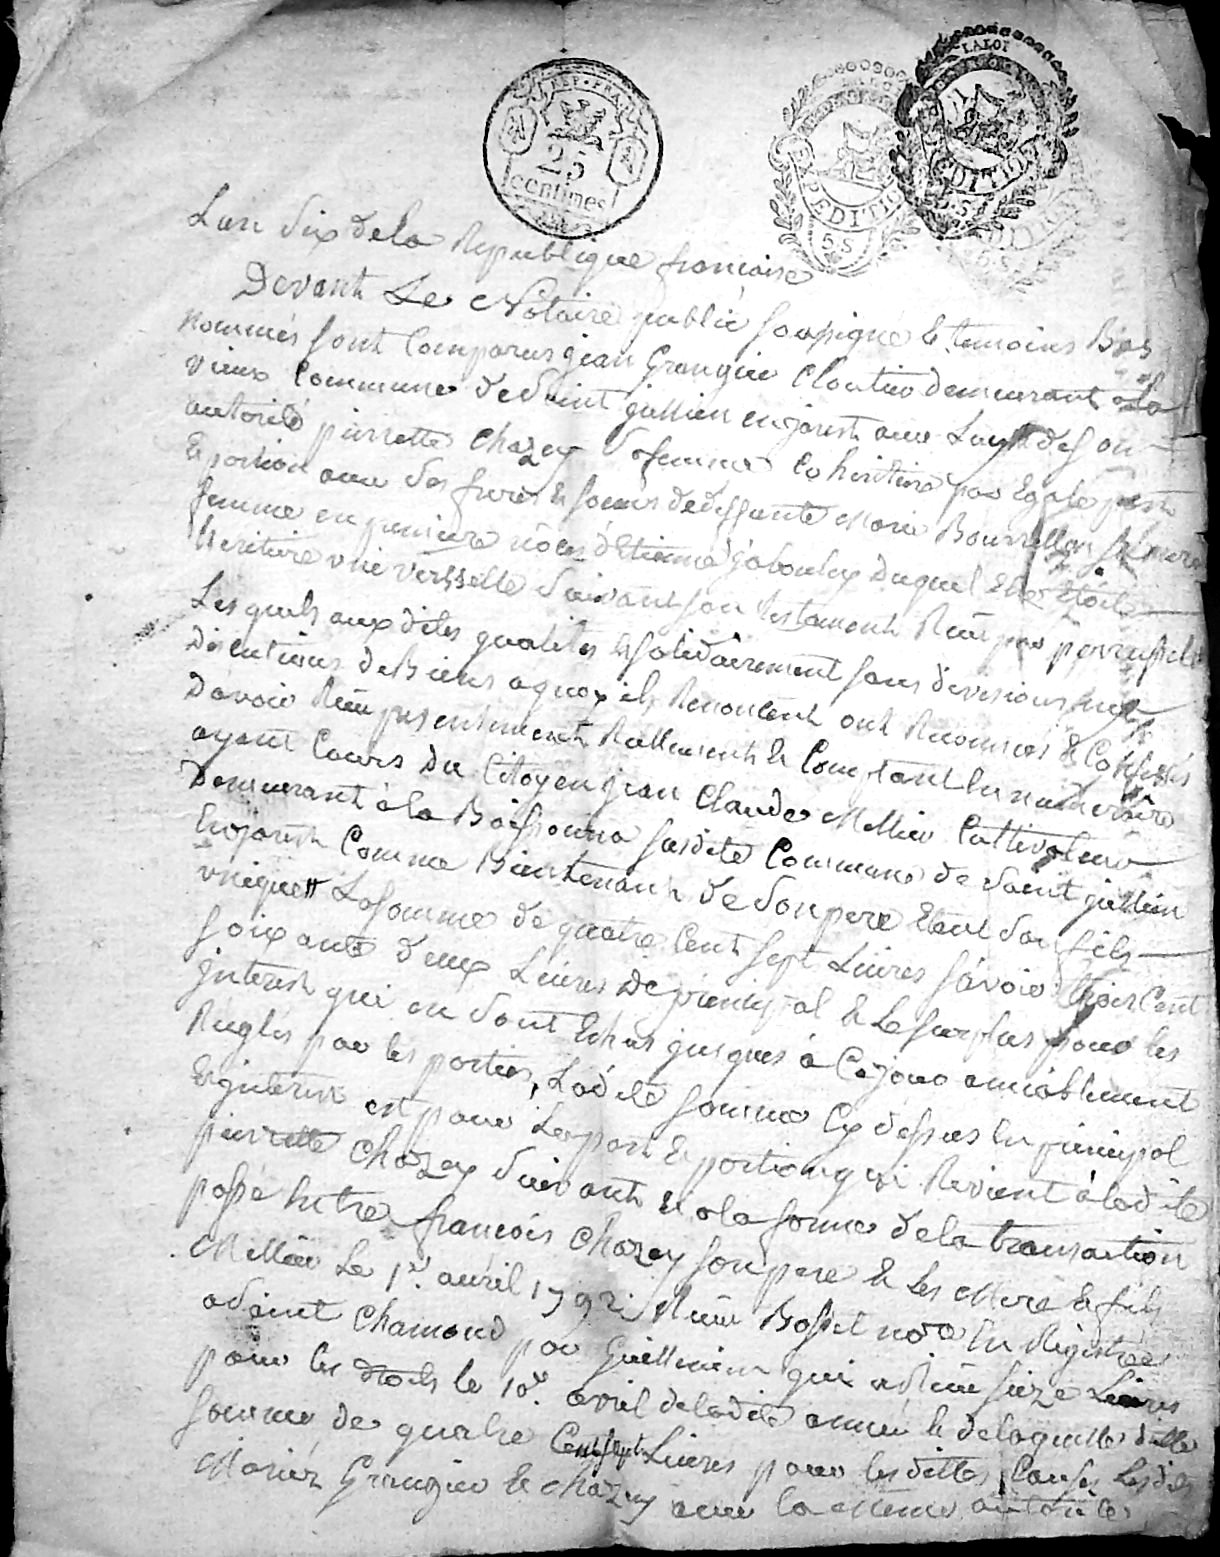 REP. FRA
25
centimes
LA LOI
EXPEDITION
5.S
EXPEDITION
5.S
L'an six de la Republique françoise
Devant Le Notaire public soussigné & temoins Bas
nommés sont Comparus jean Grangier Cloutier demeurant à la
vieux Commune de Saint jullien en jarest avec Luy & de son
autorité pierrette Chazey sa femme Cohéritiere par Egale part
& portion avec ses freres & soeurs de deffunte Marie Bourrellon sa mere
femme en premiere nôces d'Etienne jaboulay duquel Elle étoit
héritiere universelle Suivant son testament Reçu par
Lesquels aux dites qualités & solidairement sans division ny
discutions de Biens a quoy ils Renoncent ont Reconnus & Confessés
D'avoir Reçu presentement Reellement & Comptant en numeraire
ayant Cours du Citoyen jean Claude Mellier Cultivateur
Demeurant à la Boissonna susdite Commune de Saint jullien
en jarest Comme Bientenant de Son pere Etant Son fils
unique La somme de quatre Cent sept Livres sávoir trois Cent
soixante deux Livres de principal & Le surplus pour les
jnterest qui en Sont Echus jusques à Cejour amiablement
Reglés par les parties, Ladite somme Cy dessus en principal
& jnterest est pour La part & portion qui Revient à ladite
pierrette Chazey Suivant & a la forme de la transaction
passé Entre francois Chazey son pere & les Mere & fils
Mellier Le 1er. avril 1792 Reçu Bosset nore En Registrée
a Saint Chamond par Guillemin qui a Reçu seize Livres
pour les droits le 10e avril deladite année & delaquelle ditte
somme de quatre Cent sept Livres pour lesdittes Causes Lesdits
Mariéz Grangier & Chazey avec la même autorité